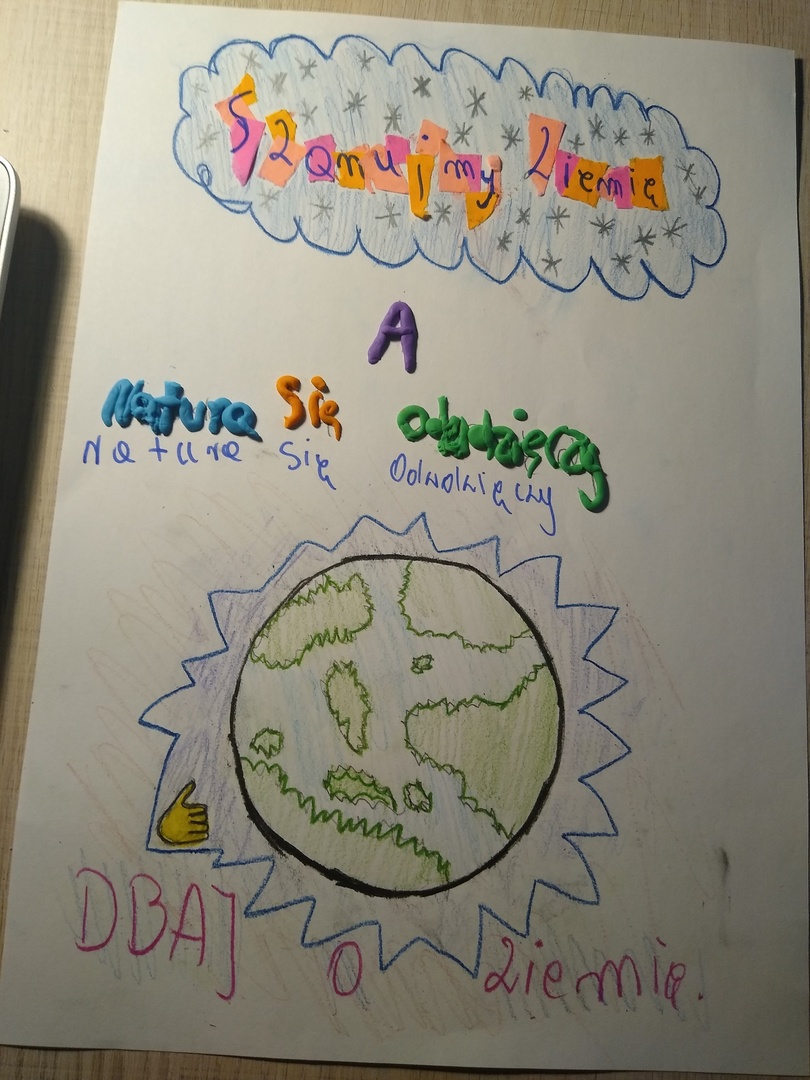 Szanujmy Ziemię
A
Natura Się Odwdzięczy
Natura Się Odwdzięczy
DBAJ O Ziemię.